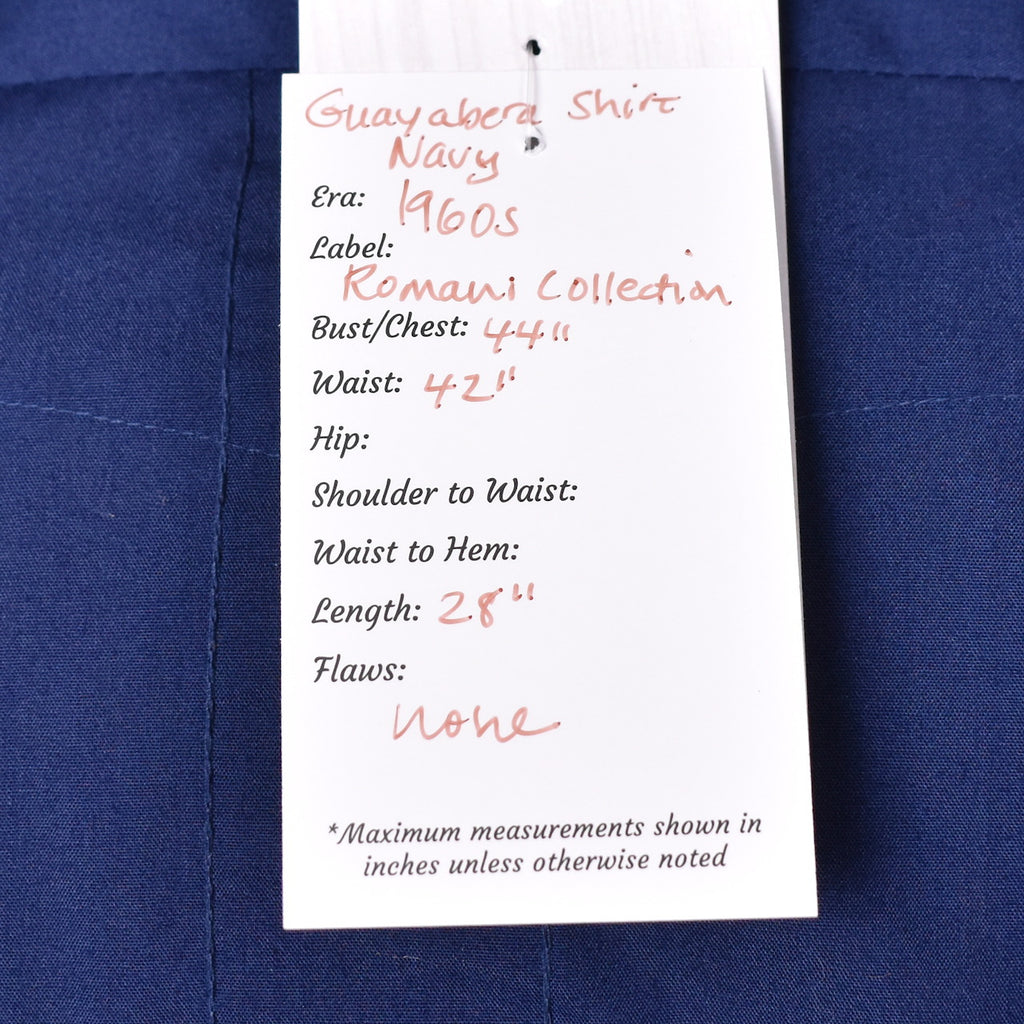 Guayabera Shirt
Navy
Era: 1960s
Label:
Romani Collection
Bust/Chest: 44"
Waist: 42"
Hip:
Shoulder to Waist:
Waist to Hem:
Length: 28"
Flaws:
none
*Maximum measurements shown in
inches unless otherwise noted